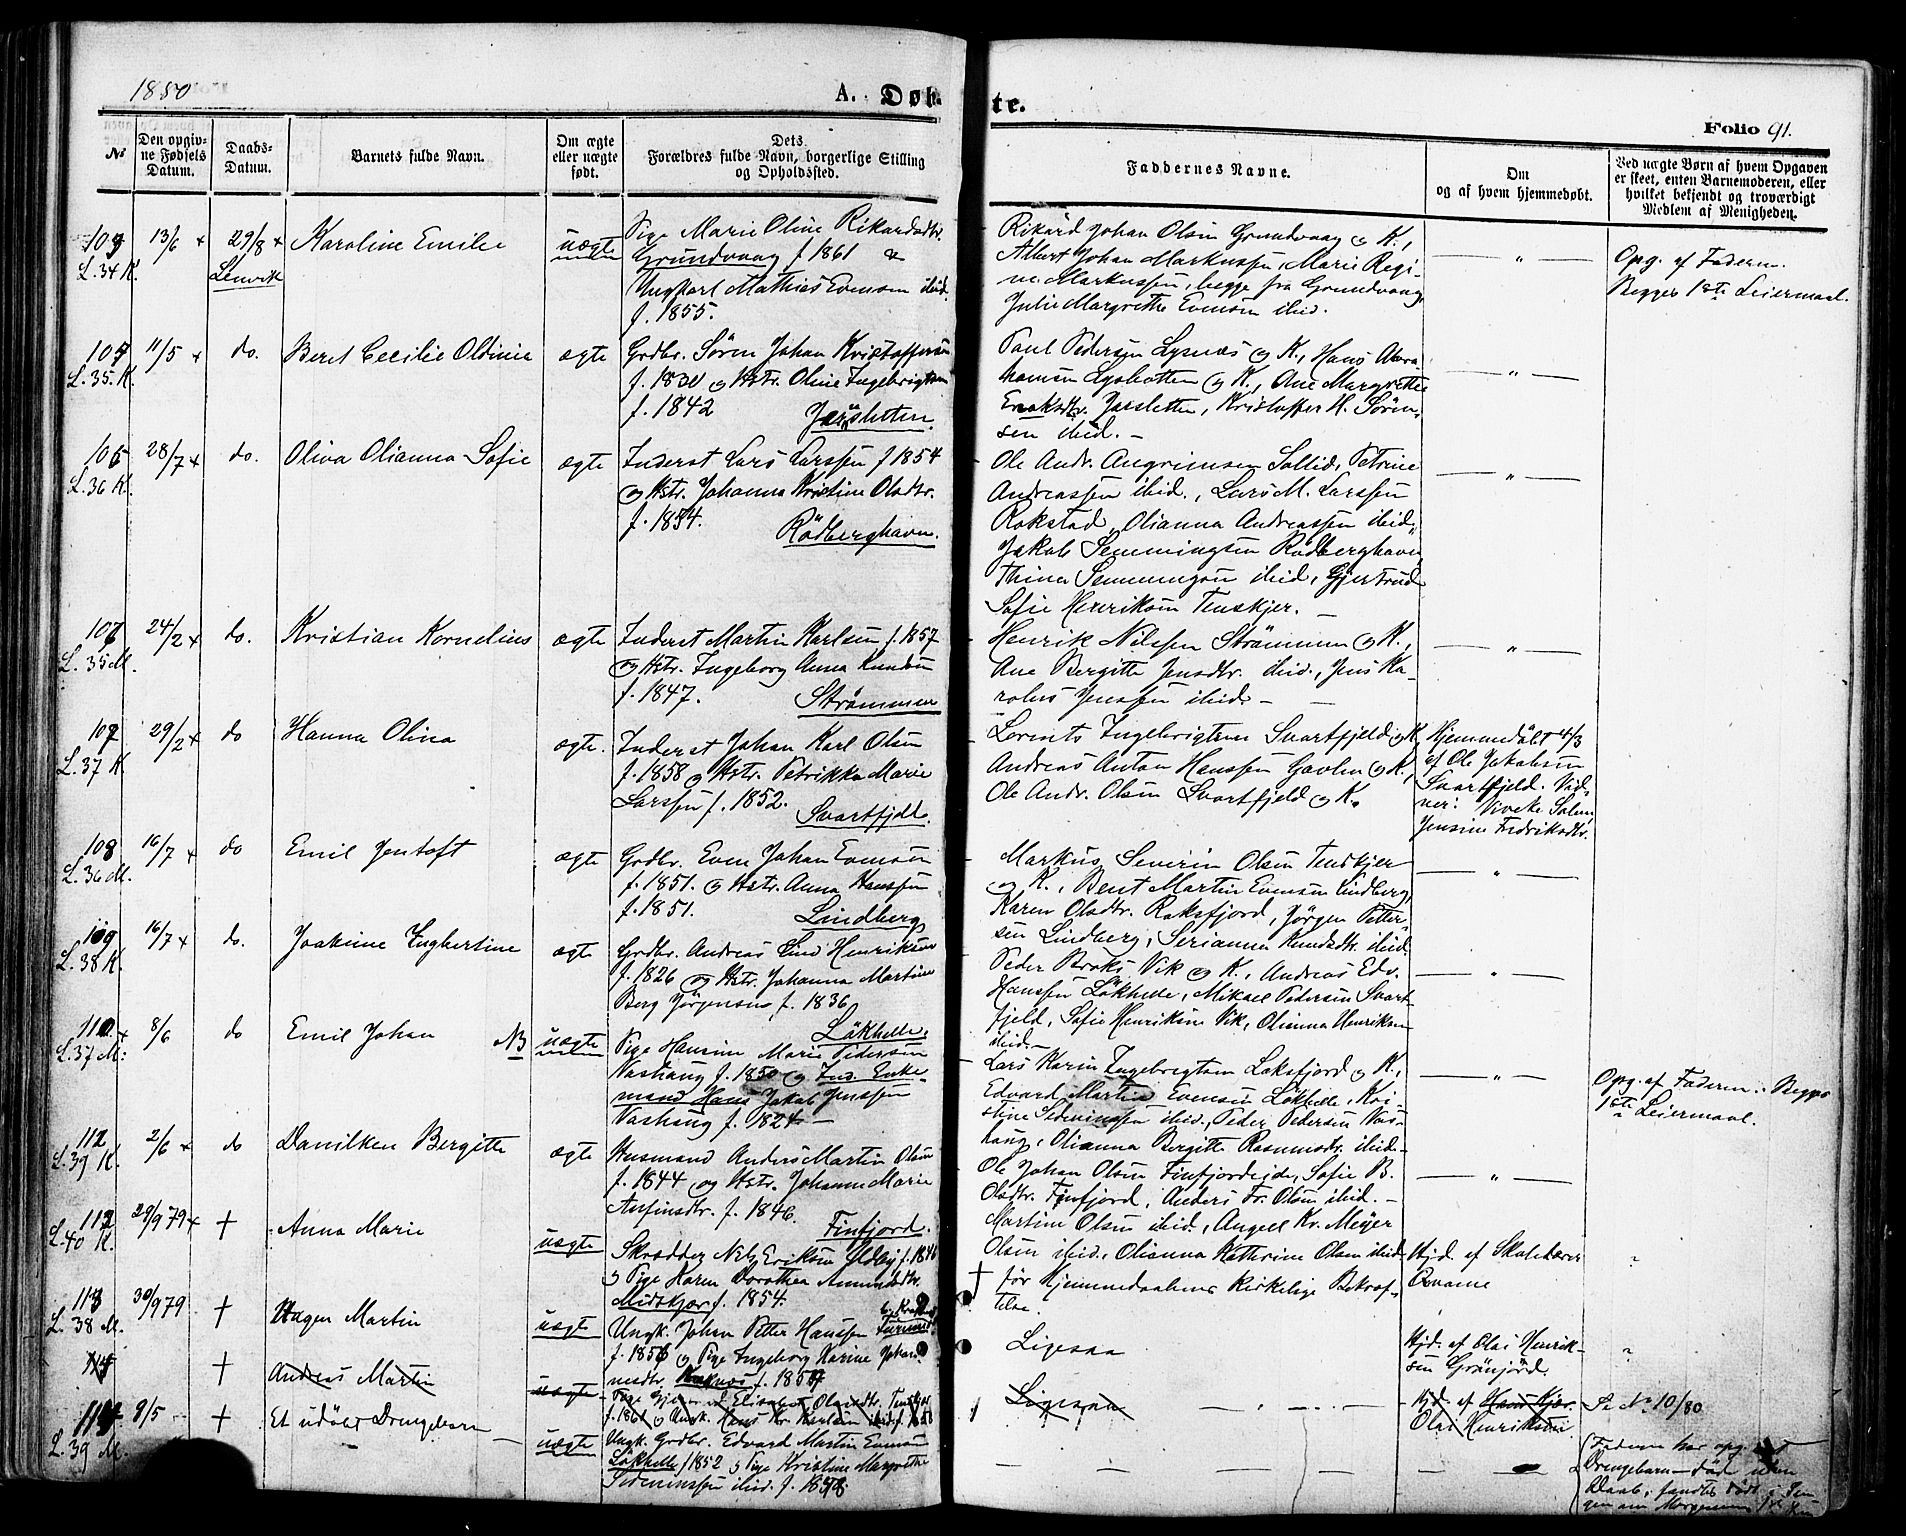 1880
A. Døb-
te.
Folio 91.
No
Den opgiv-
ne Fødsels
Datum.
Daabs-
Datum.
Barnets fulde Navn.
Om ægte
eller uægte
født.
Dets
Forældres fulde Navn, borgerlige Stilling
og Opholdssted.
Faddernes Navne.
Om
og af hvem hjemmedøbt.
Ved uægte Børn af hvem Opgaven
er skeet, enten Barnemoderen, eller
hvilket bekjendt og troværdigt
Medlem af Menigheden.
L. 34 K. 13/6 + 29/8 + Karoline Emilie uægte
Lenvik
Pige Marie Oline Rikardsdtr.
Grundvaag f 1861 &
Ungkarl Mathias Evensen ibid.
f. 1855.
Rikard Johan Olsen Grundvaag og K.,
Albert Johan Markussen, Marie Regi-
ne Markussen, begge fra Grundvaag,
Julie Margrethe Evensen ibid.
— " —
Opg. af Faderen.
Begges 1ste Leiermaal.
L. 35. K. 11/5 + do. Beret Cecilie Oldinie ægte
Grdbr. Sören Johan Kristoffersen
f. 1830 og Hstr. Oline Ingebrigtsen
f. 1842 Jarsletten.
Paul Pedersen Lysnæs og K., Hans Abra-
hamsen Lysbotten og K., Ane Margrethe
Enoksdtr. Jarsletten, Kristoffer H. Sören-
sen ibid. —
— " —
L. 36 K. 28/7 + do. Oliva Olianna Sofie ægte
Inderst Lars Larssen f 1854
og Hstr. Johanna Kristine Olsdtr.
f. 1854.
Rödberghavn.
Ole Andr. Angrimsen Sollid, Petrine
Andreassen ibid., Lars M. Larssen
Rokstad, Olianna Andreassen ibid.,
Jakob Semmingsen Rödberghavn
Thina Semmingsen ibid, Gjertrud
Sofie Henriksen Tenskjer. —
— " —
L. 35 M. 24/2 + do. Kristian Kornelius ægte
Inderst Martin Karlsen f. 1857
og Hstr. Ingeborg Anna Knudsen
f. 1847. Strømmen
Henrik Nilssen Strømmen og K.,
Ane Bergitte Jensdtr. ibid., Jens Ka-
rolus Jenssen ibid. —
— " —
107 L. 37 K. 29/2 + do Hanna Olina ægte.
Inderst Johan Karl Olsen
f. 1858 og Hstr. Petrikka Marie
Larssen f. 1852.
Svartfjeld.
Lorents Ingebrigtsen Svartfjeld og K,
Andreas Anton Hanssen Gavlen og K.,
Ole Andr. Olsen Svartfjeld og K.
Hjemmedöbt 4/3
af Ole Jakobsen
Svartfjeld. Vid-
ner: Viveke Salum,
Jensine Fredriksdtr.
108 L. 36 M. 16/7 + do Emil Jentoft ægte
Grdbr. Even Johan Evensen
f. 1851. og Hstr. Anna Hanssen
f. 1851. Lindberg
Markus Severin Olsen Tenskjer
og K., Bent Martin Evensen Lindberg,
Karen Olsdtr. Roksfjord, Jørgen Petter-
sen Lindberg, Serianna Knudsdtr. ibid.
— " —
109 L. 38 K. 16/7 + do. Joakime Ingbertine ægte
Grdbr. Andreas Lind Henriksen
f. 1826 og Hstr. Johanna Martine
Berg Jørgensen f. 1836
Løkhelle.
Peder Broks Vik og K., Andreas Edv.
Hanssen Løkhelle, Mikael Pedersen Svart-
fjeld, Sofie Henriksen Vik, Olianna Henriksen
ibid. —
— " —
110 L. 37 M. 8/6 do Emil Johan NB uægte
Pige Hansine Marie Pedersen
Vashaug f. 1850 og Ind. Enke-
mand Hans Jakob Jenssen
Vashaug f. 1824 —
Lars Karin Ingebrigtsen Laksfjord og K.,
Edvard Martin Evensen Løkhelle, Kri-
stine Sedeninssen ibid., Peder Pedersen Vas-
haug, Olianna Bergitte Rasmusdtr. ibid. —
— " —
Opg. af Faderen. Begges
1ste Leiermaal.
L. 39 K. 2/6 + do Danilken Bergitte ægte
Husmand Anders Martin Olsen
f. 1844 og Hstr. Johanne Marie
Anfinsdtr. f. 1846. Finfjord.
Ole Johan Olsen Finfjordeide, Sofie B.
Olsdtr. Finfjord, Anders Fr. Olsen ibid. —
Martine Olsen ibid., Angell Kr. Meyer
Olsen ibid., Olianna Kathrine Olsen ibid.
— " —
L. 40 K. 29/9 79 + † Anna Marie uægte
Skrædder Nils Eriksen f. 1846
og Pige Karen Dorothea Amundsdtr.
Midtkjær f. 1854.
† før Hjemmedaabens Kirkelige Bekræf-
telse.
Hjd. af Skolelærer
"
113 L. 38 M. 30/9 79 † Hagen Martin uægte
Ungk. Johan Petter Hanssen
f. 1856 og Pige Ingeborg Karine Johan-
nesdtr. f. 1857
Ligesaa
Hjd. af Olai Henrik-
sen Grönjord.
"
† Andreas Martin uægte
Olsdtr.
f. 1861 og Ungk. Hans Kr. Karlsen ibid.
Ligesaa — " — . —
Hjd. af Hans Kjær.
Olai Henriksen.
Se No 10/80
114 L. 39 M. 9/5 † Et udöbt Drengebarn — uægte
Ungk. Grdbr. Edvard Martin Evensen
Løkhelle f 1852 og Pige Kristine Margrethe
Sedeninssen ibid. f. 1858
— — — — —
Faderen har opg. at
Drengebarn — död uden
Daab, fandtes dödt i Sen-
gen om Morgenen